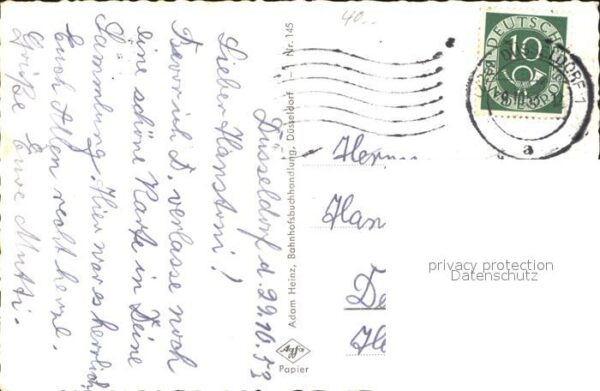 Düsseldorf d. 29.10.53
Lieber Hanstoni!
Bevor ich D. verlasse noch
eine schöne Karte in Deine
Sammlung. Hier war es herrlich
Euch Allen recht herzl.
Grüße Eure Mutti.
Adam Heinz, Bahnhofsbuchhandlung, Düsseldorf - Nr. 145
Agfa
Papier
40..
DEUTSCHE
10
BUNDESPOST
DÜSSELDORF 1
a
Herrn
Han
De
privacy protection
Datenschutz